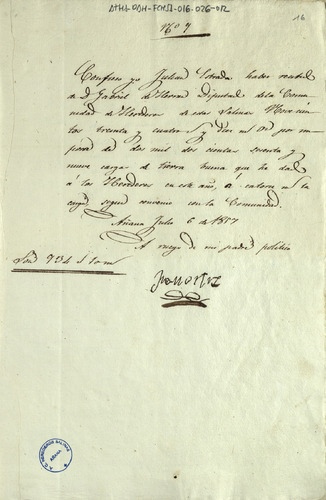 ATHA-DAH-FCHSA-016-026-012
16
Nº 7
Confieso yo Julian Estrada haber recibido
de D. Gabriel de Herran Diputado de la Comu
nidad de Herederos de estas Salinas Novecien
tos treinta y cuatro y diez ms von por im
porte de dos mil dos cientas sesenta y
nueve cargas de tierra buena que ha dado
á los Herederos en este año, a catorce ms la
carga segun convenio con la Comunidad.
Añana Julio 6 de 1857
A ruego de mi padre politico
Son 934 10 ms
A.C. HEREDEROS SALINAS
AÑANA